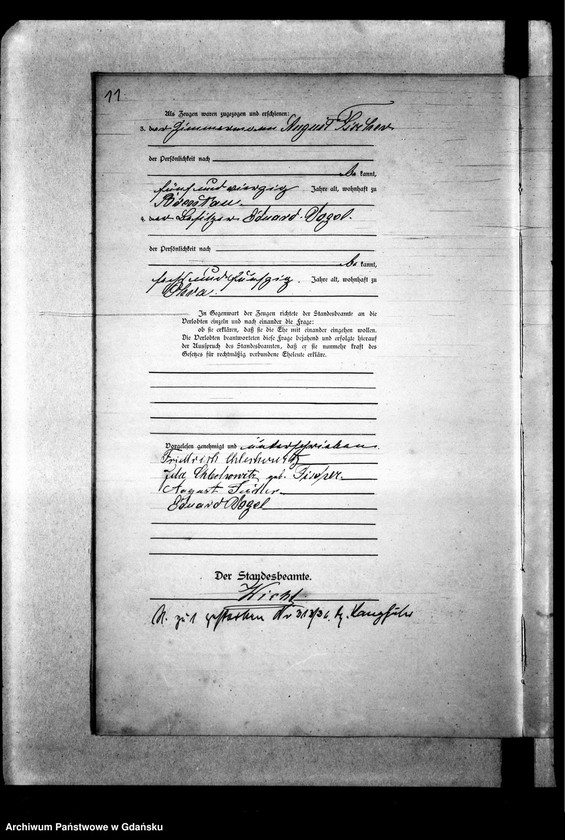 11
Als Zeugen waren zugezogen und erschienen:
3. der Zimmermann August
der Persönlichkeit nach
be kannt,
fünf und vierzig Jahre alt, wohnhaft zu
4. der Besitzer Eduard Vogel.
der Persönlichkeit nach
be kannt,
sechs und fünfzig. Jahre alt, wohnhaft zu
Ohra.
In Gegenwart der Zeugen richtete der Standesbeamte an die
Verlobten einzeln und nach einander die Frage:
ob sie erklären, daß sie die Ehe mit einander eingehen wollen.
Die Verlobten beantworteten diese Frage bejahend und erfolgte hierauf
der Ausspruch des Standesbeamten, daß er sie nunmehr kraft des
Gesetzes für rechtmäßig verbundene Eheleute erkläre.
Vorgelesen genehmigt und unterschrieben
Friedrich
geb.
August
Eduard Vogel
Der Standesbeamte.
zu 1 gestorben Nr Langfuhr
Archiwum Państwowe w Gdańsku